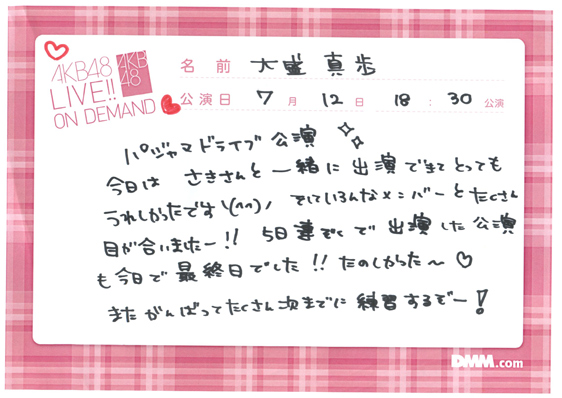 AKB48
LIVE!!
ON DEMAND
AKB
48
名前 大盛真歩
公演日 7月12日 18:30公演
パジャマドライブ公演
今日は さきさんと一緒に出演できてとっても
うれしかったです\(^^)/ そしていろんなメンバーとたくさん
目が合いましたー!! 5日連ぞくで出演した公演
も今日で最終日でした!! たのしかった〜♡
またがんばってたくさん次までに練習するぞー!
DMM.com